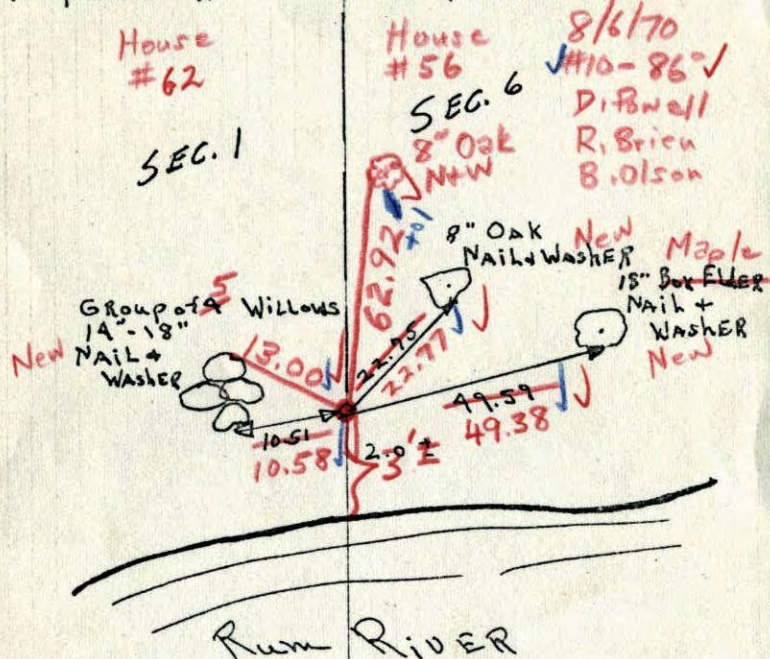 House
#62
House
#56
8/6/70
#10-86°
D. Powell
R. Brien
B. Olson
SEC. 1
SEC. 6
8" Oak
N+W
62.92
8" Oak
NAIL & WASHER
New
Maple
18" Box ELDER
NAIL +
WASHER
New
GRoup of 4 5 WiLLows
14"-18"
New NAIL &
WASHER
13.00
22.75
22.77
49.59
49.38
10.51
10.58
2.0 ±
3'±
Rum RiVER